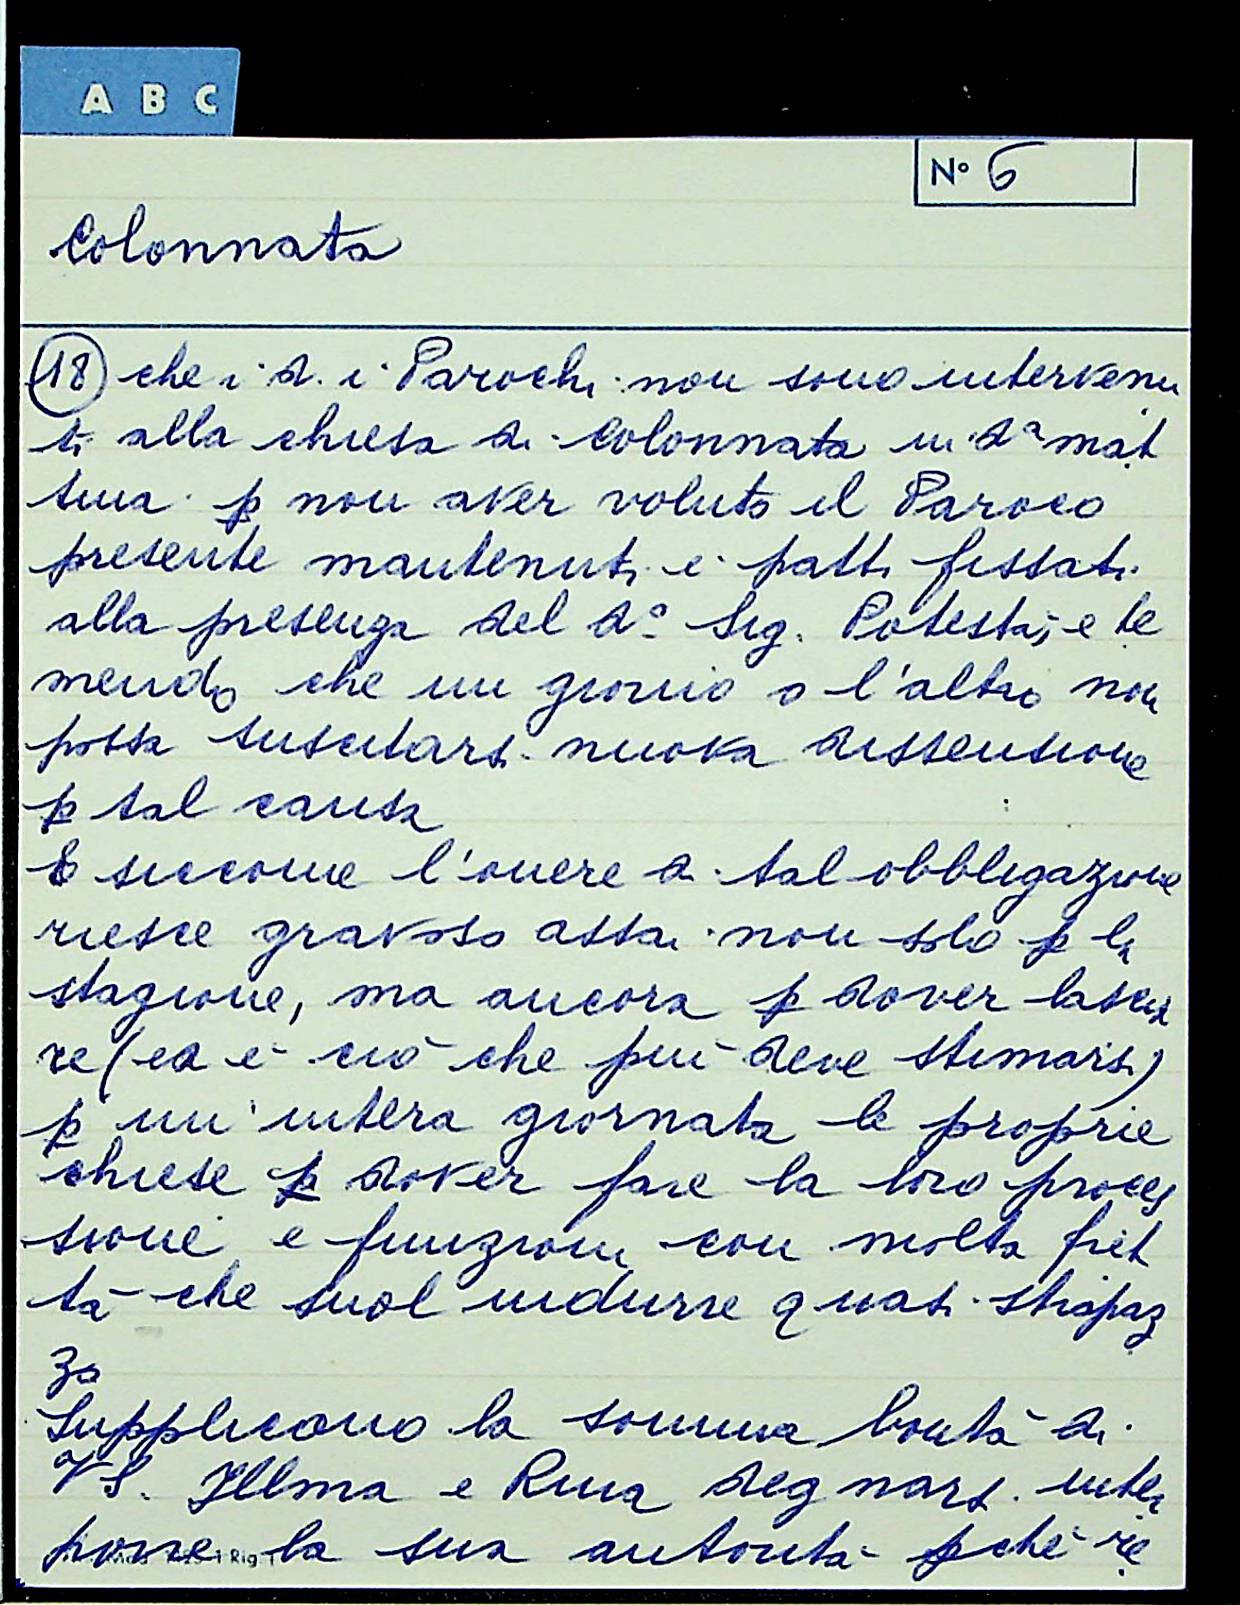 A B C
N° 6
Colonnata
18 che i d. i Parochi non sono intervenu
ti alla chiesa di Colonnata in dª mat
tina p non aver voluto il Paroco
presente mantenuti e patti fissati
alla presenza del d° Sig. Potestà, e te
mendo che un giorno o l'altro non
possa suscitarsi nuova dissensione
p tal causa
E siccome l'onere di tal obbligazione
riesce gravoso assai non solo p la
stagione, ma ancora p dover lascia
re (ed è ciò che più deve stimarsi)
p un'intera giornata le proprie
chiese p dover fare la loro proces
sione e funzioni con molta fret
ta che suol indurre quasi strapaz
zo
Supplicano la somma bontà di
VS. Illma e Rma degnarsi inter
porre la sua autorità pché re
1 Rig.